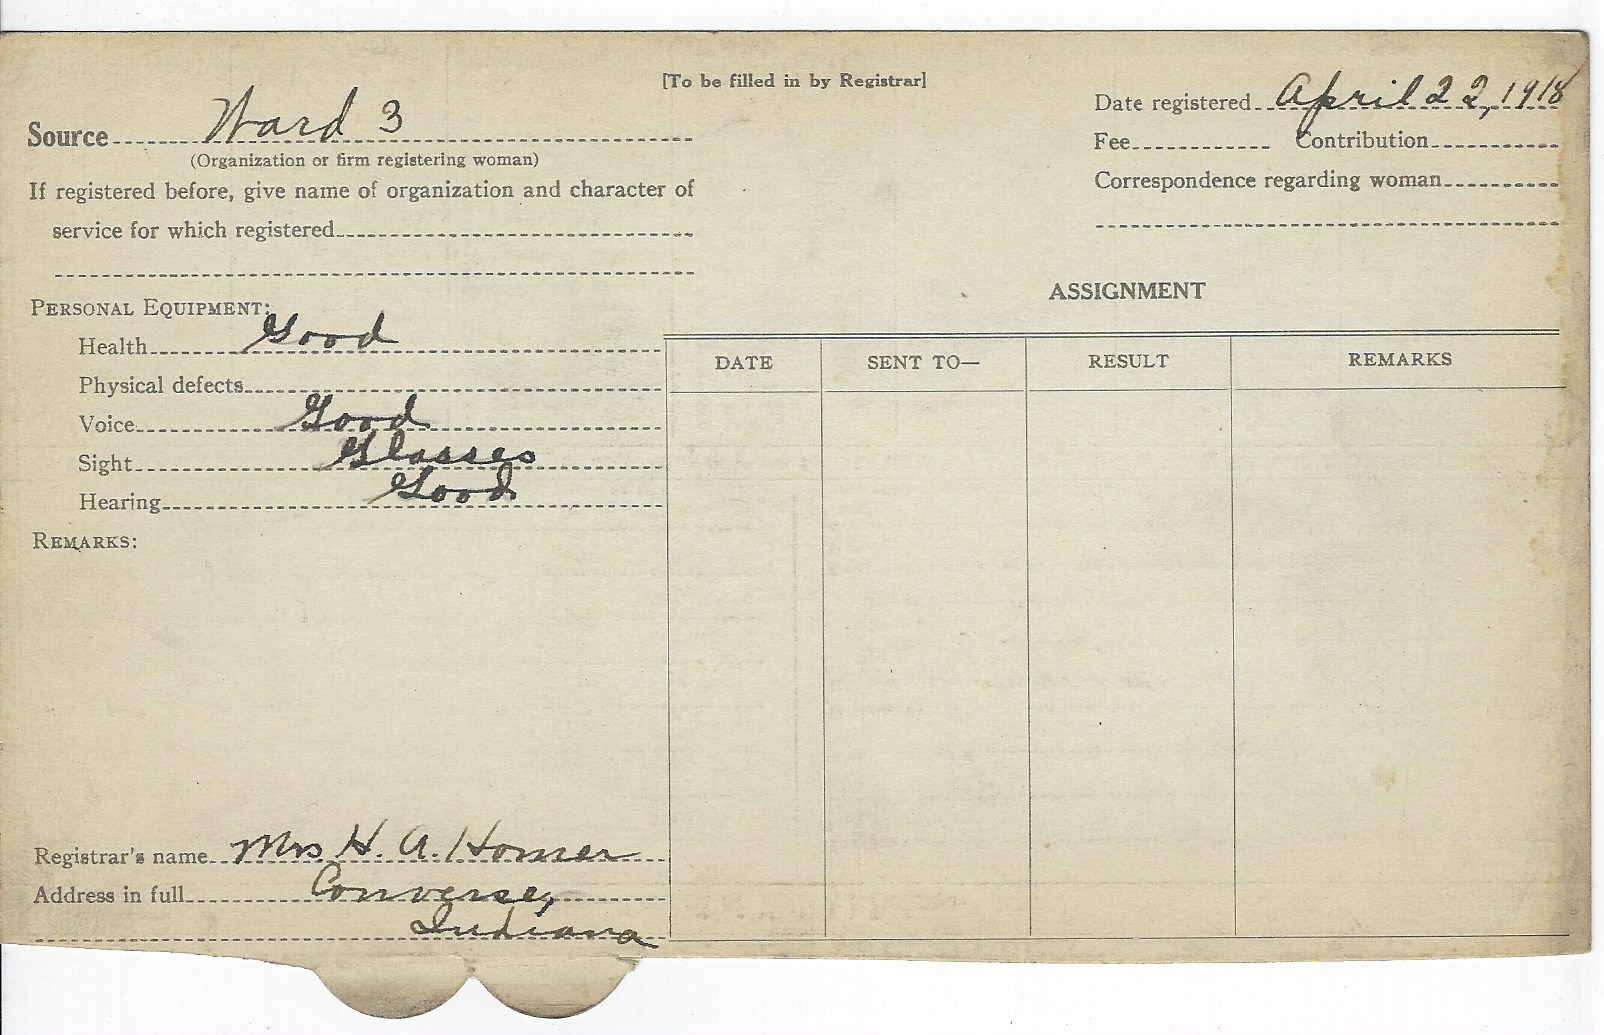 [To be filled in by Registrar]
Source Ward 3
(Organization or firm registering woman)
If registered before, give name of organization and character of
service for which registered
Date registered April 22, 1918
Fee Contribution
Correspondence regarding woman
PERSONAL EQUIPMENT:
Health Good
Physical defects
Voice Good
Sight Glasses
Hearing Good
REMARKS:
ASSIGNMENT
DATE SENT TO— RESULT REMARKS
Registrar's name Mrs H. A. Homer
Address in full Converse,
Indiana